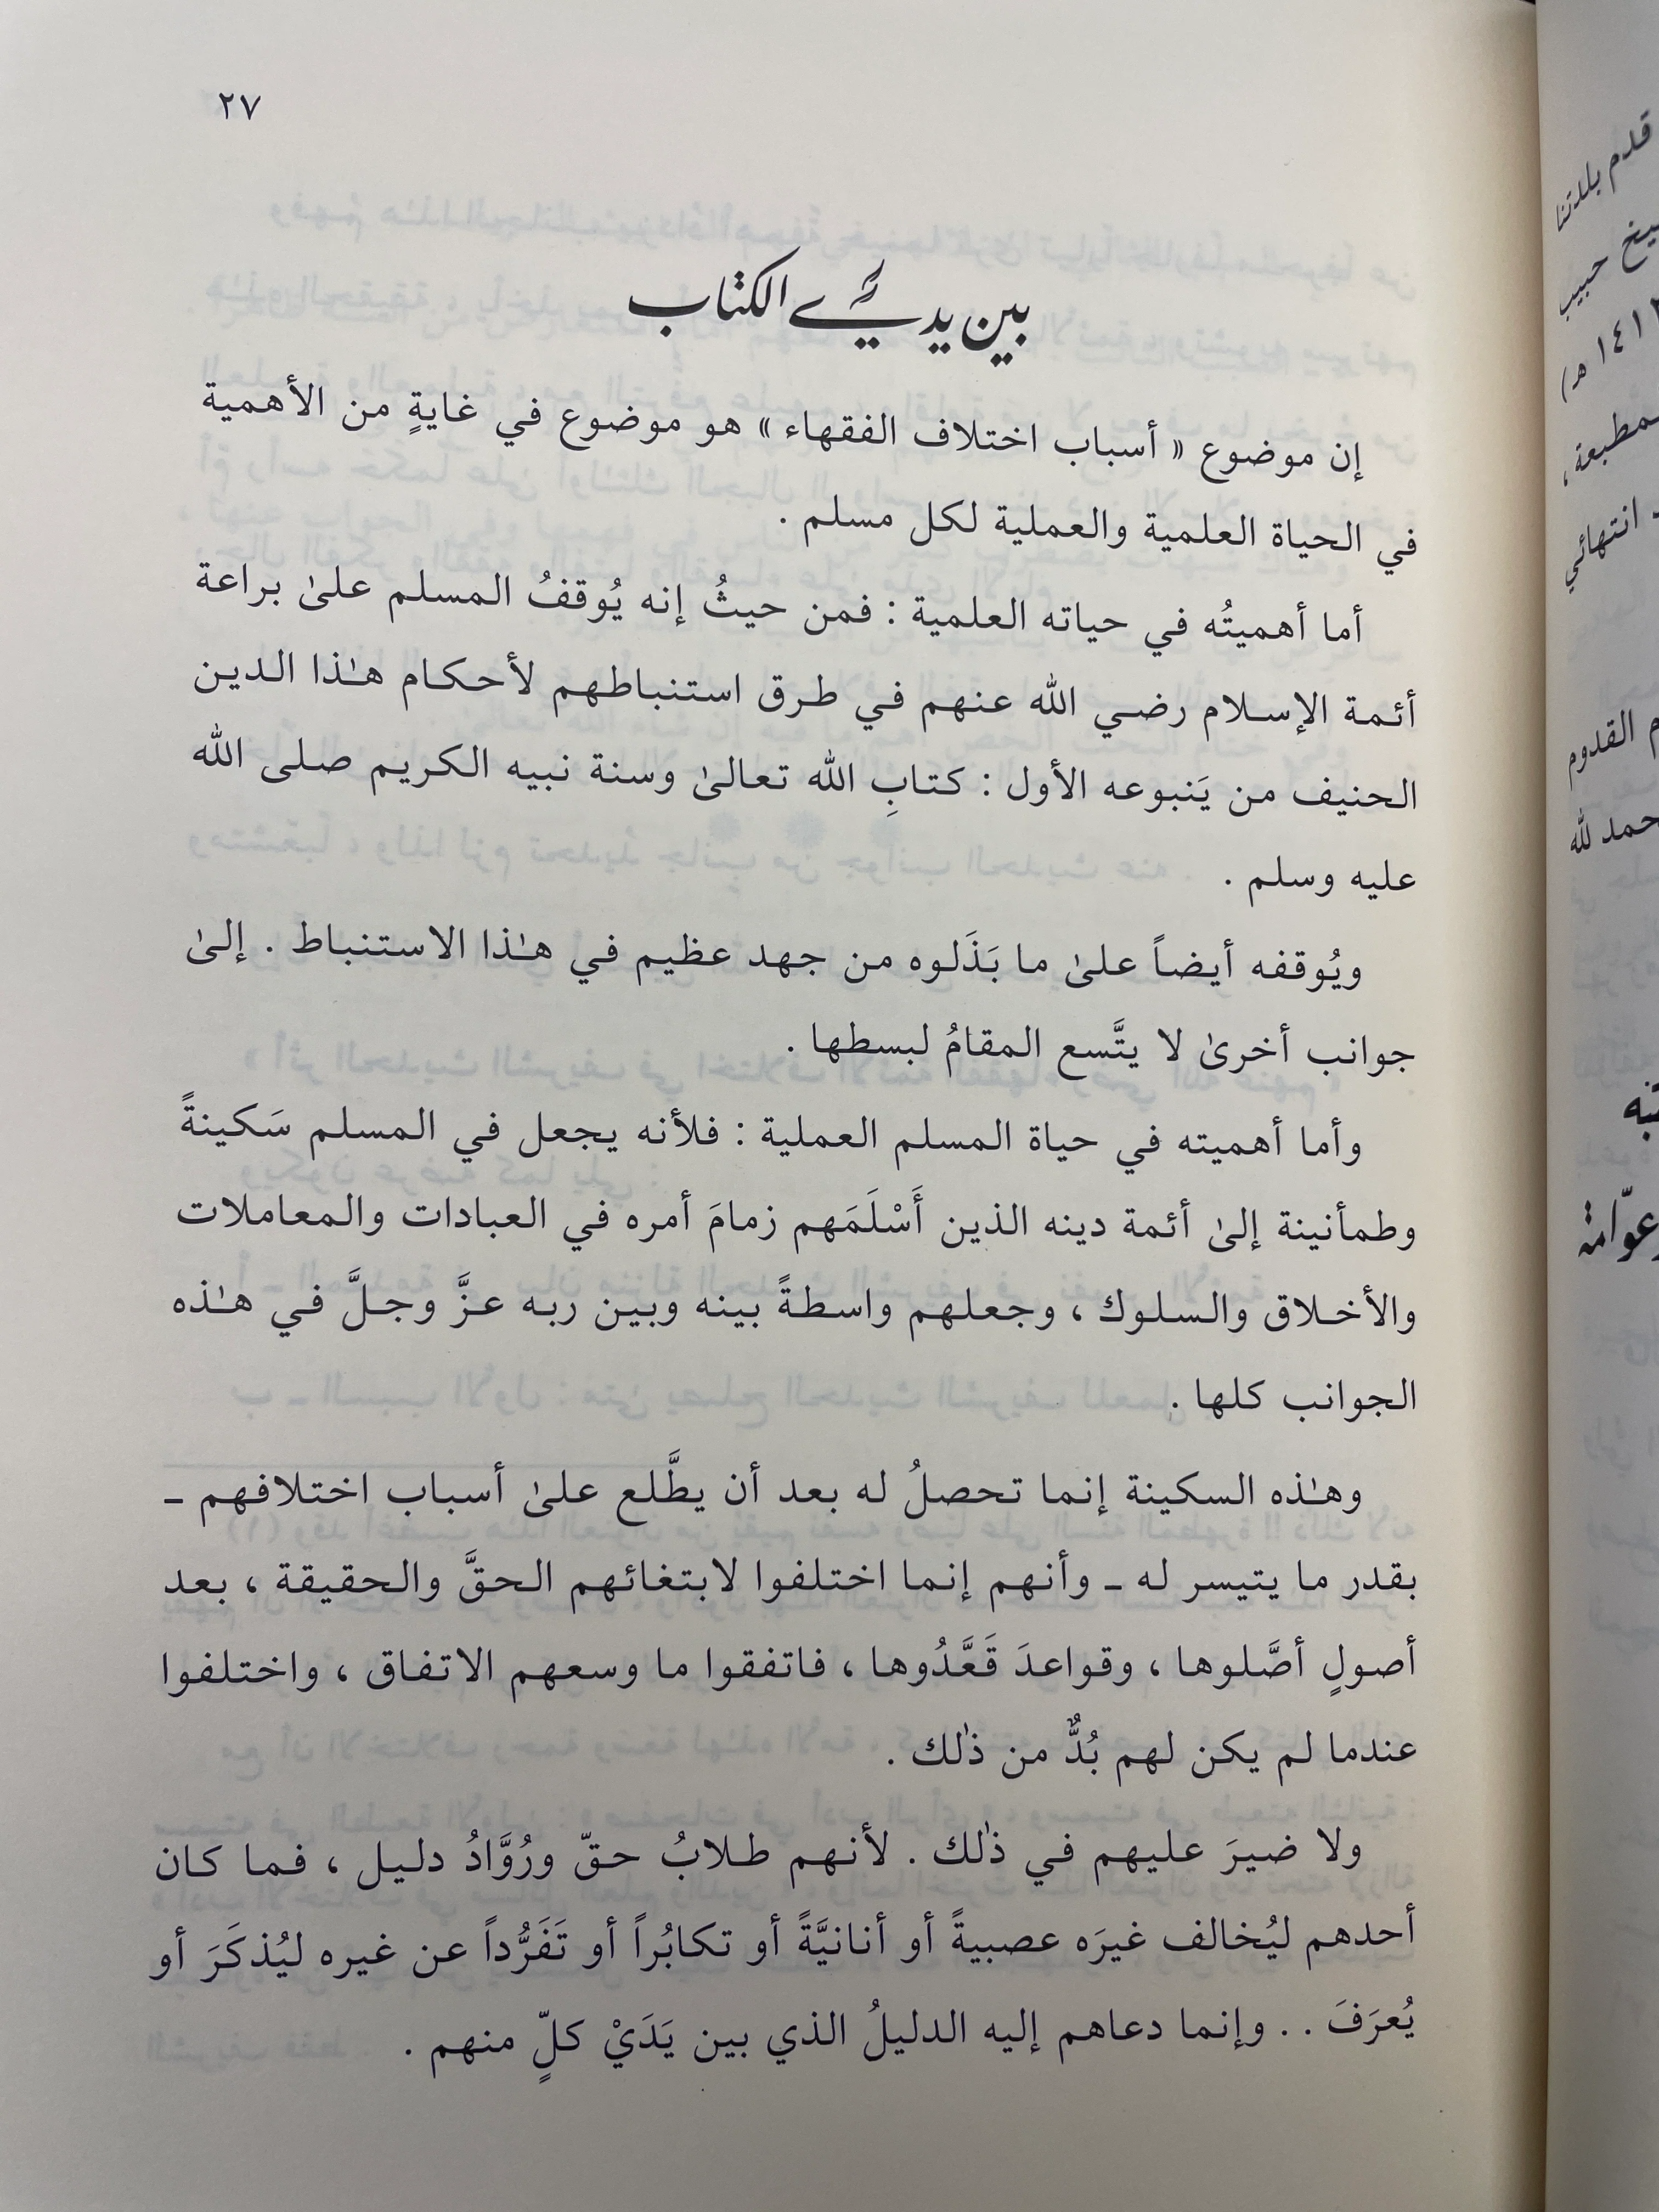 ٢٧
بين يدي الكتاب
إن موضوع « أسباب اختلاف الفقهاء » هو موضوع في غايةٍ من الأهمية
في الحياة العلمية والعملية لكل مسلم .
أما أهميتُه في حياته العلمية : فمن حيثُ إنه يُوقفُ المسلم علىٰ براعة
أئمة الإسلام رضي الله عنهم في طرق استنباطهم لأحكام هـٰذا الدين
الحنيف من يَنبوعه الأول : كتابِ الله تعالىٰ وسنة نبيه الكريم صلى الله
عليه وسلم .
ويُوقفه أيضاً علىٰ ما بَذَلوه من جهد عظيم في هـٰذا الاستنباط . إلىٰ
جوانب أخرىٰ لا يتَّسع المقامُ لبسطها .
وأما أهميته في حياة المسلم العملية : فلأنه يجعل في المسلم سَكينةً
وطمأنينة إلىٰ أئمة دينه الذين أَسْلَمَهم زمامَ أمره في العبادات والمعاملات
والأخلاق والسلوك ، وجعلهم واسطةً بينه وبين ربه عزَّ وجلَّ في هـٰذه
الجوانب كلها .
وهـٰذه السكينة إنما تحصلُ له بعد أن يطَّلع علىٰ أسباب اختلافهم ـ
بقدر ما يتيسر له ـ وأنهم إنما اختلفوا لابتغائهم الحقَّ والحقيقة ، بعد
أصولٍ أصَّلوها ، وقواعدَ قَعَّدُوها ، فاتفقوا ما وسعهم الاتفاق ، واختلفوا
عندما لم يكن لهم بُدٌّ من ذٰلك .
ولا ضيرَ عليهم في ذٰلك . لأنهم طلابُ حقّ ورُوَّادُ دليل ، فما كان
أحدهم ليُخالف غيرَه عصبيةً أو أنانيَّةً أو تكابُراً أو تَفَرُّداً عن غيره ليُذكَرَ أو
يُعرَفَ . . وإنما دعاهم إليه الدليلُ الذي بين يَدَيْ كلٍّ منهم .
قدم بلدتنا
حبيب
هـ)
انتهائي
القدوم
لله